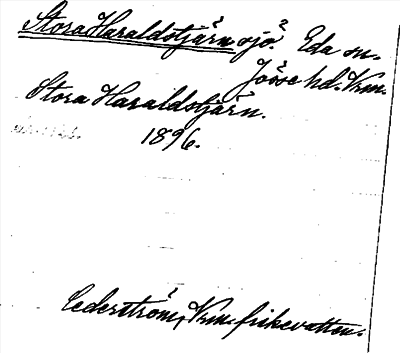 Stora Haraldstjärn sjö? Eda sn.
Jösse hd. Vrm.
Stora Haraldstjärn.
1896.
Cederström, Vrm. fiskevatten.